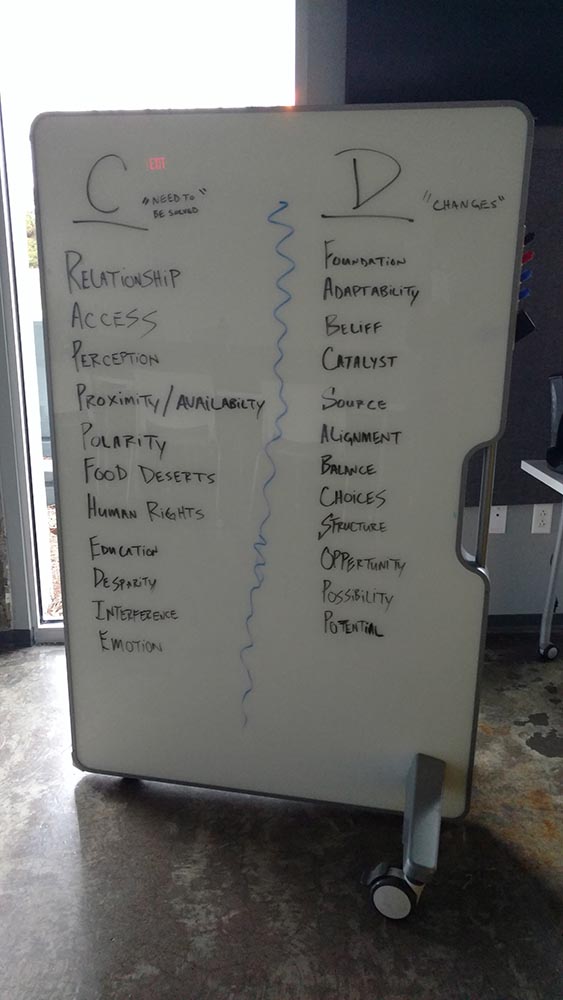 C
EXIT
"NEED TO"
BE SOLVED
RELATIONSHIP
ACCESS
PERCEPTION
PROXIMITY/AVAILABILTY
POLARITY
FOOD DESERTS
HUMAN RIGHTS
EDUCATION
DESPARITY
INTERFERENCE
EMOTION
D
"CHANGES"
FOUNDATION
ADAPTABILITY
BELIFF
CATALYST
SOURCE
ALIGNMENT
BALANCE
CHOICES
STRUCTURE
OPPERTUNITY
POSSIBILITY
POTENTIAL